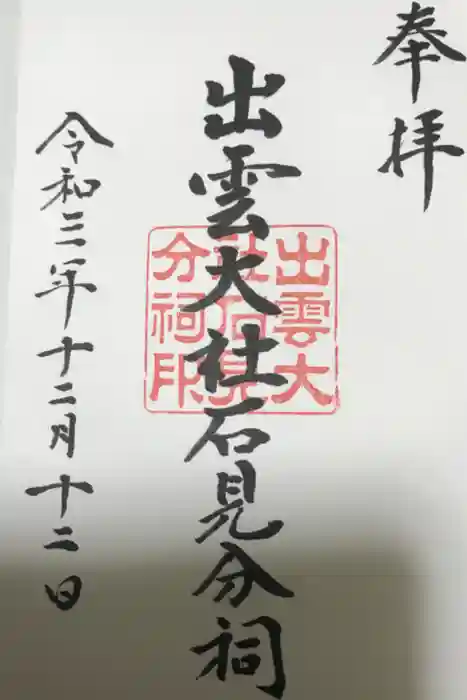 奉拝
出雲大社石見分祠
出雲大
社石見
分祠印
令和三年十二月十二日